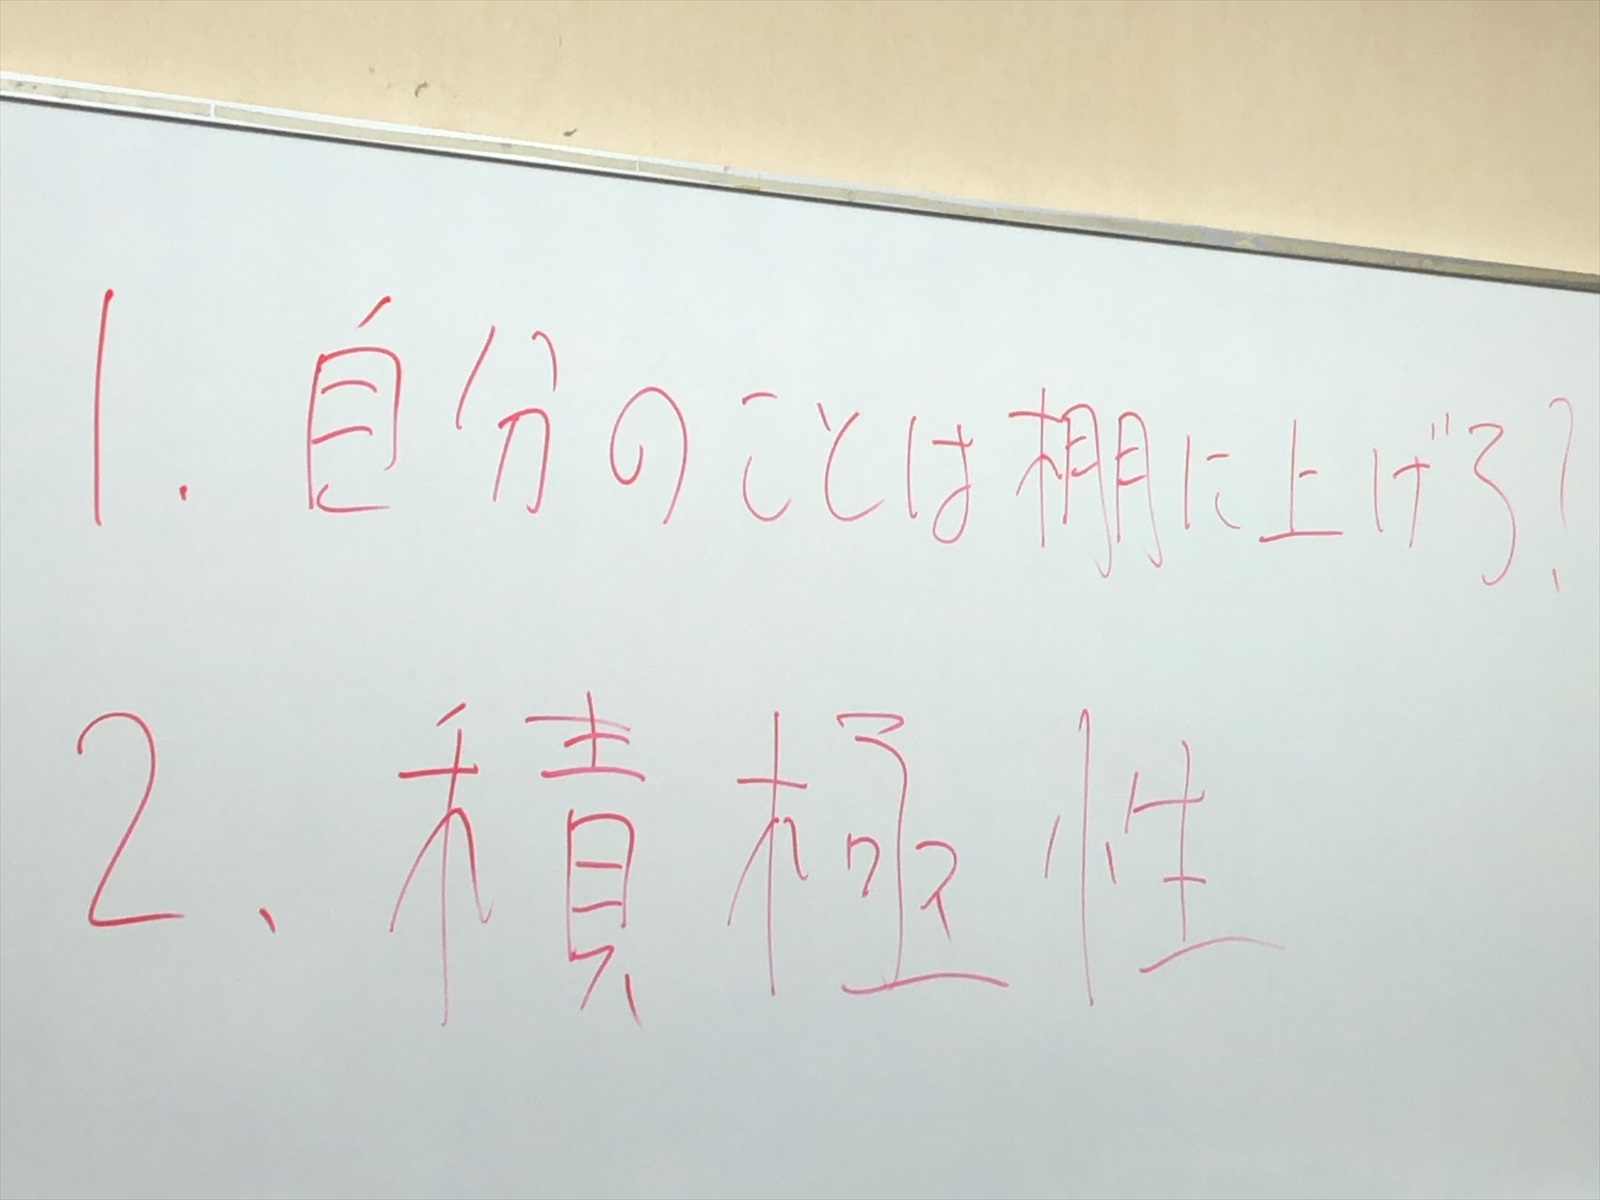 1. 自分のことは棚に上げろ?
2、積極性